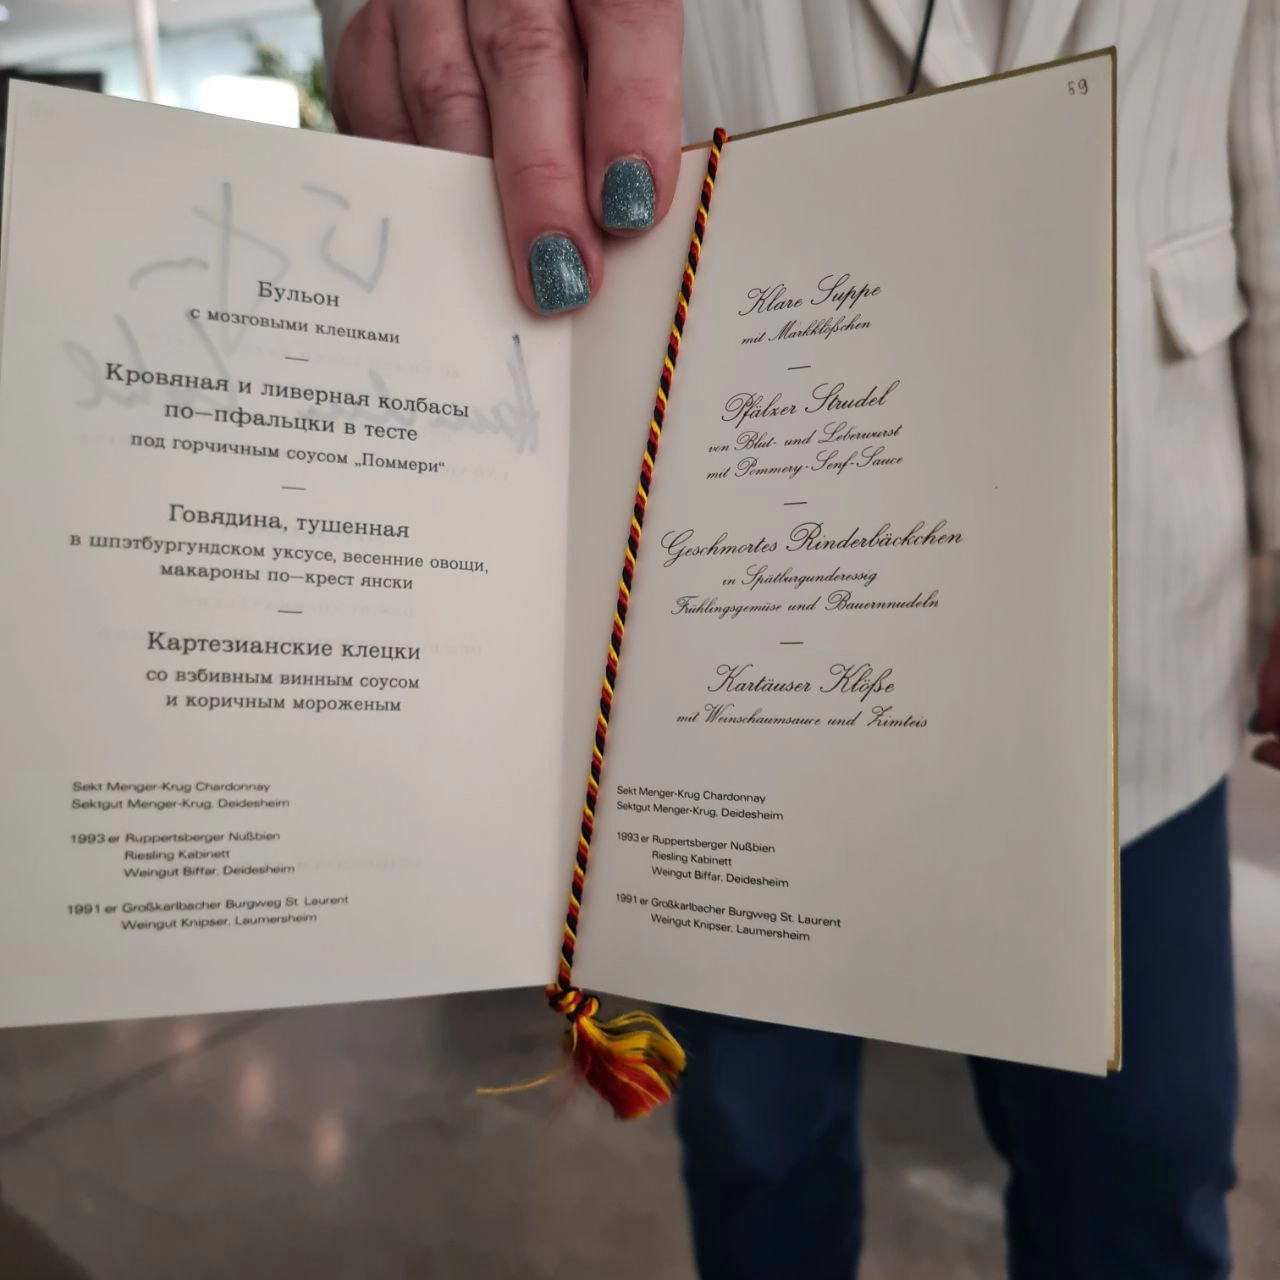 Бульон
с мозговыми клецками
—
Кровяная и ливерная колбасы
по—пфальцки в тесте
под горчичным соусом „Поммери“
—
Говядина, тушенная
в шпэтбургундском уксусе, весенние овощи,
макароны по—крест янски
—
Картезианские клецки
со взбивным винным соусом
и коричным мороженым
Sekt Menger-Krug Chardonnay
Sektgut Menger-Krug, Deidesheim
1993er Ruppertsberger Nußbien
Riesling Kabinett
Weingut Biffar, Deidesheim
1991er Großkarlbacher Burgweg St. Laurent
Weingut Knipser, Laumersheim
59
Klare Suppe
mit Markklößchen
—
Pfälzer Strudel
von Blut- und Leberwurst
mit Pommery-Senf-Sauce
—
Geschmortes Rinderbäckchen
in Spätburgunderessig
Frühlingsgemüse und Bauernnudeln
—
Kartäuser Klöße
mit Weinschaumsauce und Zimteis
Sekt Menger-Krug Chardonnay
Sektgut Menger-Krug, Deidesheim
1993er Ruppertsberger Nußbien
Riesling Kabinett
Weingut Biffar, Deidesheim
1991er Großkarlbacher Burgweg St. Laurent
Weingut Knipser, Laumersheim